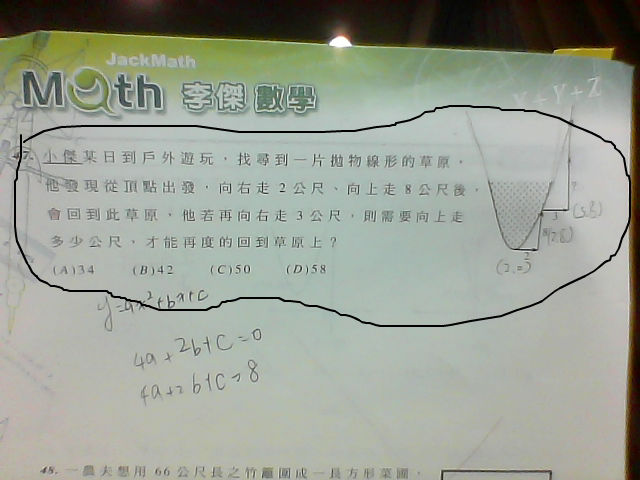 JackMath
Math 李傑數學
X + Y + Z
47. 小傑某日到戶外遊玩，找尋到一片拋物線形的草原，
他發現從頂點出發，向右走 2 公尺、向上走 8 公尺後，
會回到此草原，他若再向右走 3 公尺，則需要向上走
多少公尺，才能再度的回到草原上？
(A)34 (B)42 (C)50 (D)58
?
3
8
2
y=ax²+bx+c
4a+2b+c=0
4a+2b+c=8
48. 一農夫想用 66 公尺長之竹籬圍成一長方形菜圃，